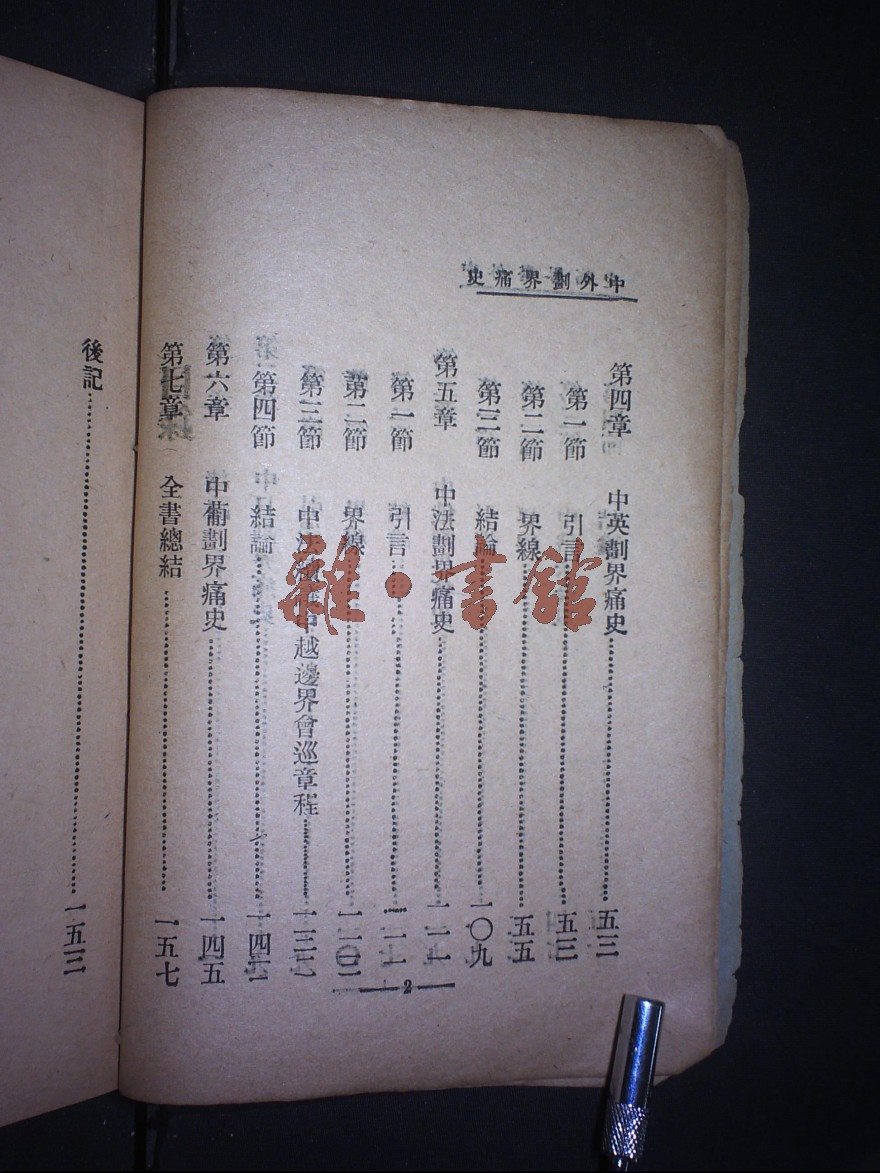 中外劃界痛史
第四章 中英劃界痛史 五三
第一節 引言 五三
第二節 界線 五五
第三節 結論 一〇九
第五章 中法劃界痛史 一一一
第一節 引言 一一一
第二節 界線
第三節 中法 中越邊界會巡章程
第四節 結論
第六章 中葡劃界痛史 一四五
第七章 全書總結 一五七
後記 一五三
2
雜·書館